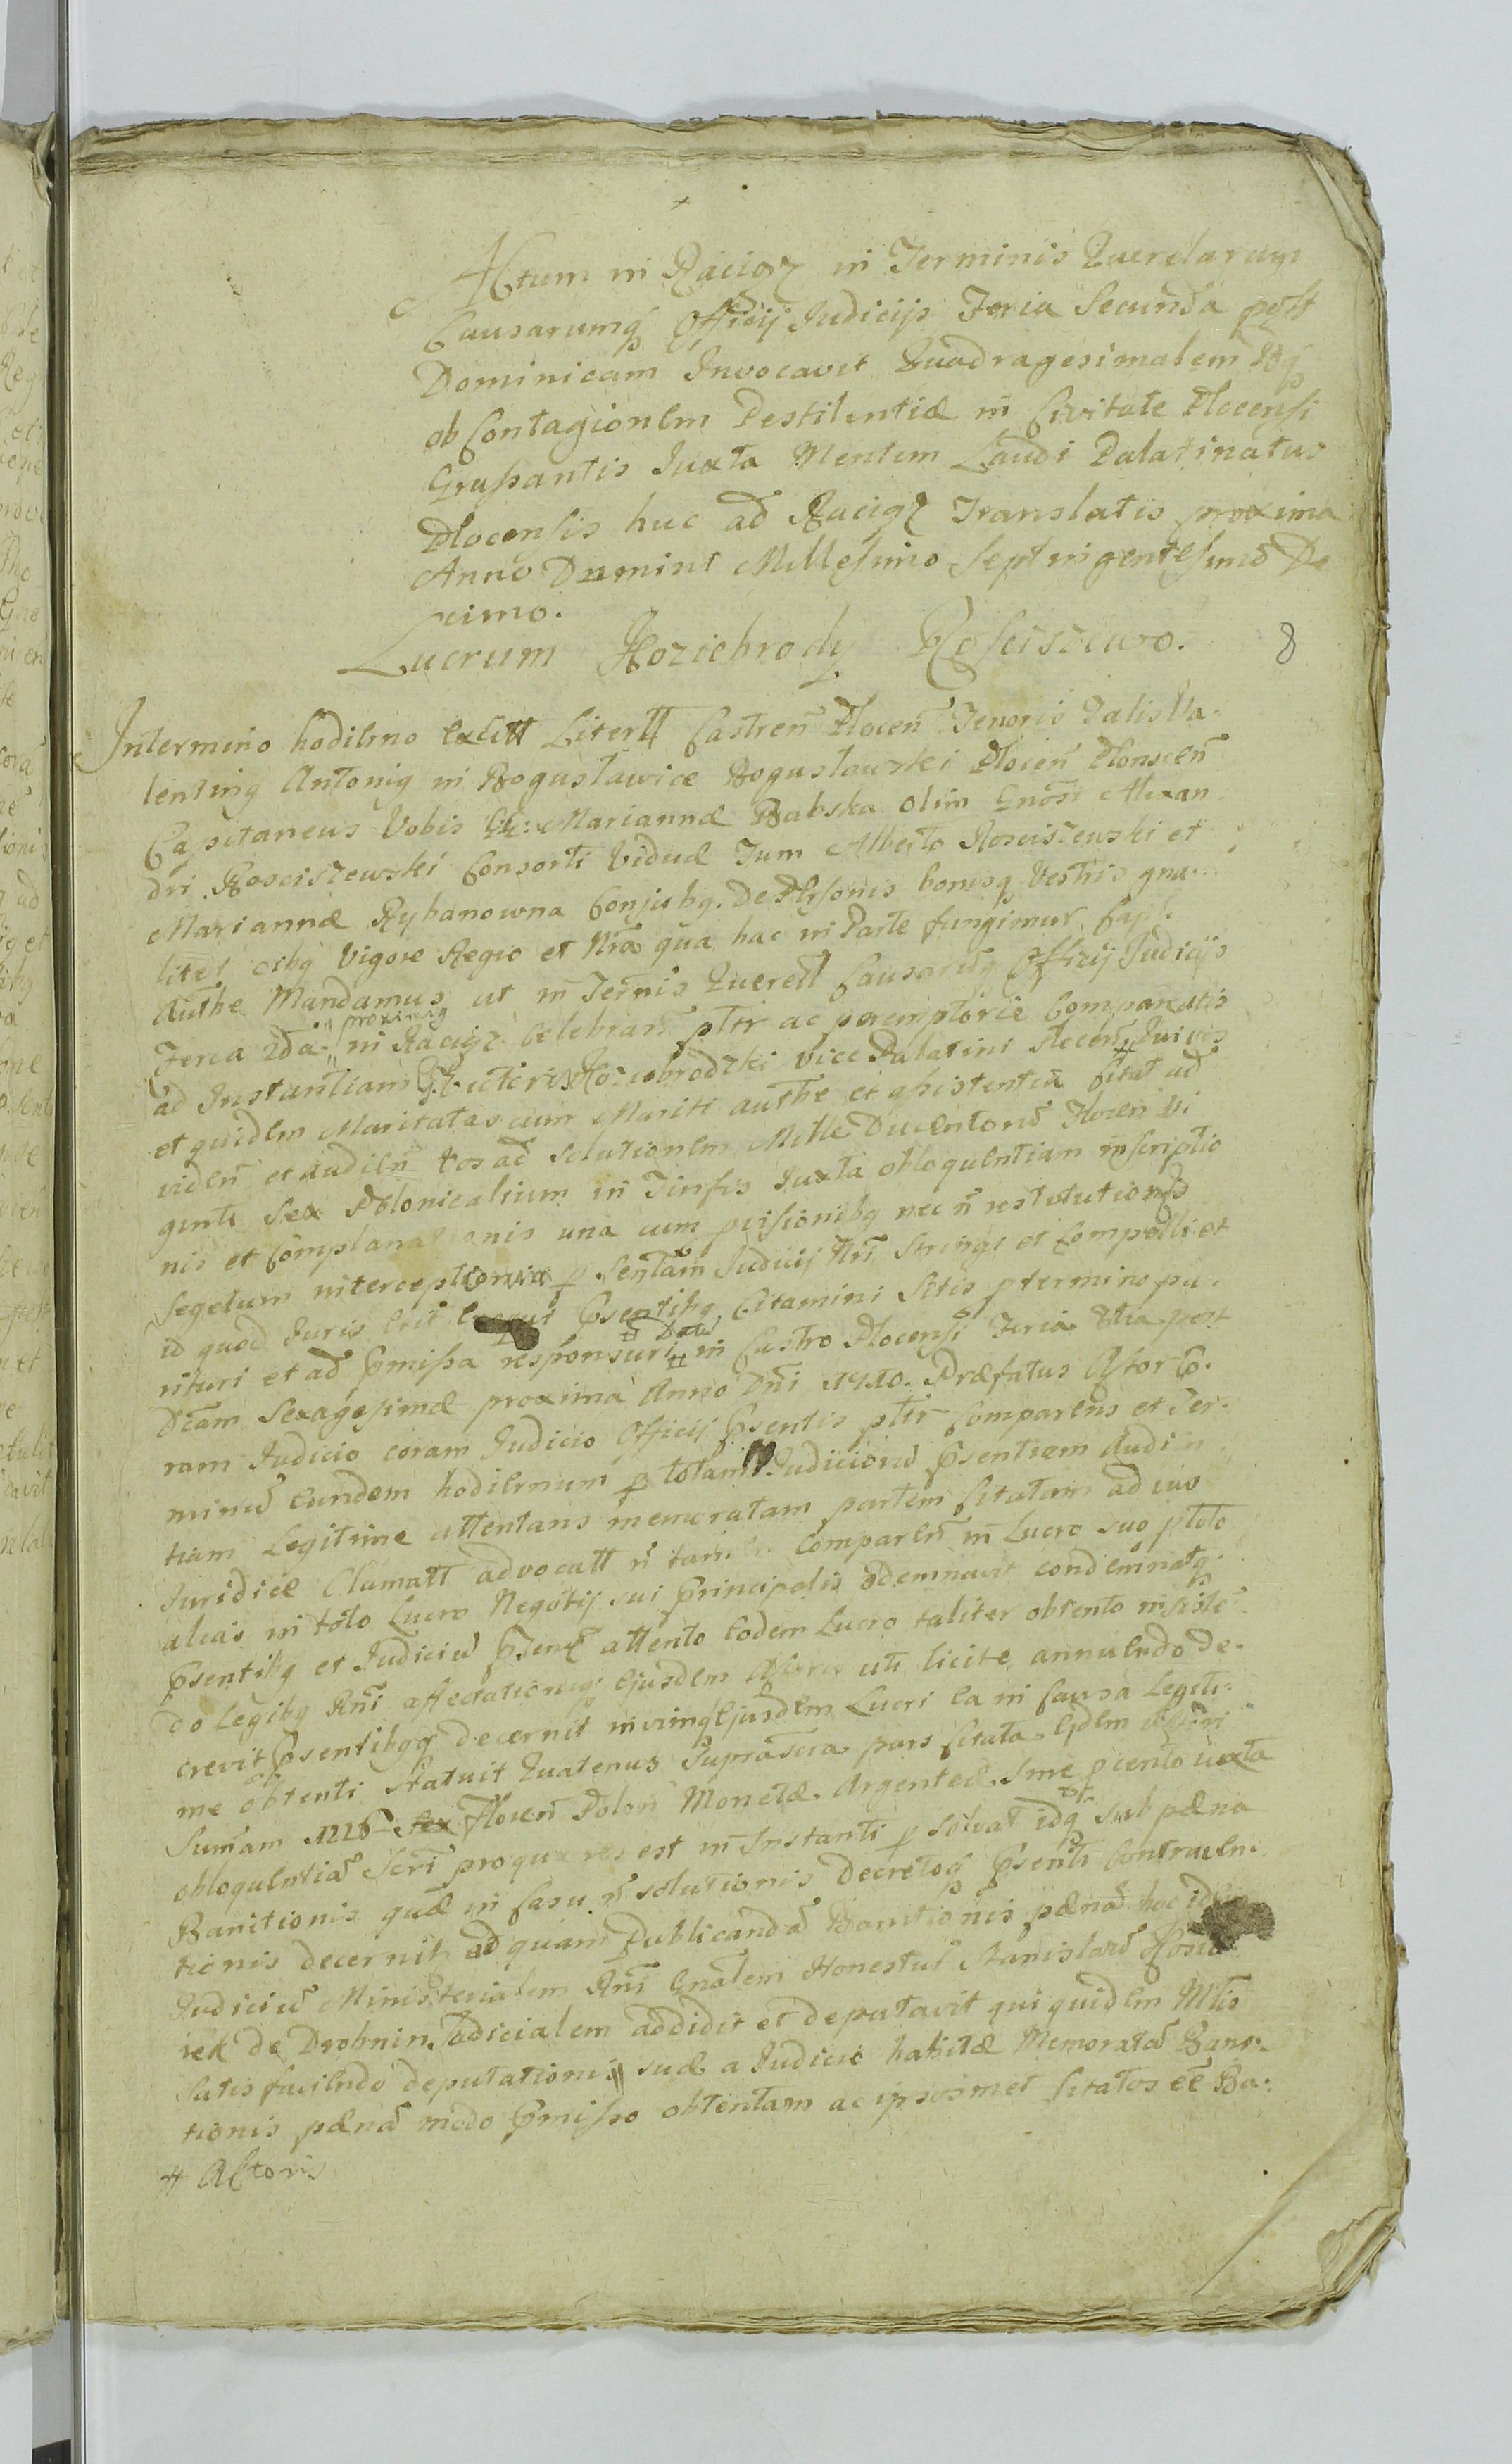 Actum in Raciąz in Terminis Querelarum
Causarumq Officij Judicijs Feria Secunda post
Dominicam Invocavit Quadragesimalem Iisq
ob Contagionem Pestilentiæ in Civitate Plocensi
Grassantis Juxta Mentem Laudi Palatinatus
Plocensis huc ad Raciąz Translatis proxima
Anno Domini Millesimo Septingentesimo De
cimo.
Lucrum Koziebrody Rosciszewo. 8
Intermino hodierno Literll Castren Plocen Tenoris Talis Va-
lentinq Antoniq in Bogusławice Bogusławski Plocen Plonscen
Capitaneus Vobis Gk: Mariannæ Babska olim Gnosi Alexan
dri Rosciszewski Consorti Viduæ Tum Alberto Rosciszewski et
Mariannæ Rybanowna Conjubq. De Psonis bonisq Vestris gna
liter oibq Vigore Regio et Nra qua hac in Parte fungimur Capli
Authe Mandamus ut in Ternis Querell Causarūq Officij Judicijs
Feria 2da proximiq in Raciąz celebran pltr ac peremptorie Compareatis
ad Instantiam Koziebrodzki Vice Palatini Plocen
et quidem Maritatas cum Mariti authe et assistentia Citat ad
viden et audien vos ad solutionem Mille Ducentorū Floren Vi
ginti Sex Polonicalium in Tinfis Juxta obloquentiam inscriptio
nis et Complanationis una cum pvisionibq nec ñ restitutionis
Segetum p Sentam Judicij Nri Stringi et Compelli et
id quod Juris erit Psentibq Citamini Sitis ptermino pa-
rituri et ad Pmissa responsuri Datū in Castro Plocensi Feria 3tia post
Dcam Sexagesimæ proxima Anno Dni 1710. Præfatus Actor
ram Judicio coram Judicio Officij Psentis pltr Comparens et Ter-
minū eundem hodiernum p totam Judiciorū Psentiem Audien
tiam Legitime attentans memoratam partem Citatam ad ius
Juridice Clamatt advocatt ñ tamen Comparen in Lucro suo ptoto
alias in toto Lucro Negotij sui Principalis condemnatq
Psentibq et Judiciū Psens attento Eodem Lucro taliter obtento insiste
do Legibq Rni affectationiq Ejusdem Actoris uti licite annuendo de-
crevit Psentibqq decernit invimqEjusdem Lucri ea in Causa Legiti-
me obtenti Statuit Quatenus Suprascra pars Citata Eidem Actori
Sumam 1226 Floren Polon Monetæ Argenteæ
obloquentiā Scri proqua res est in Instanti p solvat idq sub pæna
Banitionis quæ in Casu ñ solutionis Decretoq Psenti Contraven-
tionis decernit ad quam Publicandā Banitionis pænā hoc idem
Judiciū Ministerialem Rni Gnalem Honestū Stanislaū
de Drobnin. addidit et deputavit qui quidem Mtis
Satisfaciendo deputationi suæ a Judicio habitæ Memoratā Bani-
tionis pænā modo Pmisso obtentam ac ipsosmet Citatos eē Ba-
# Actoris